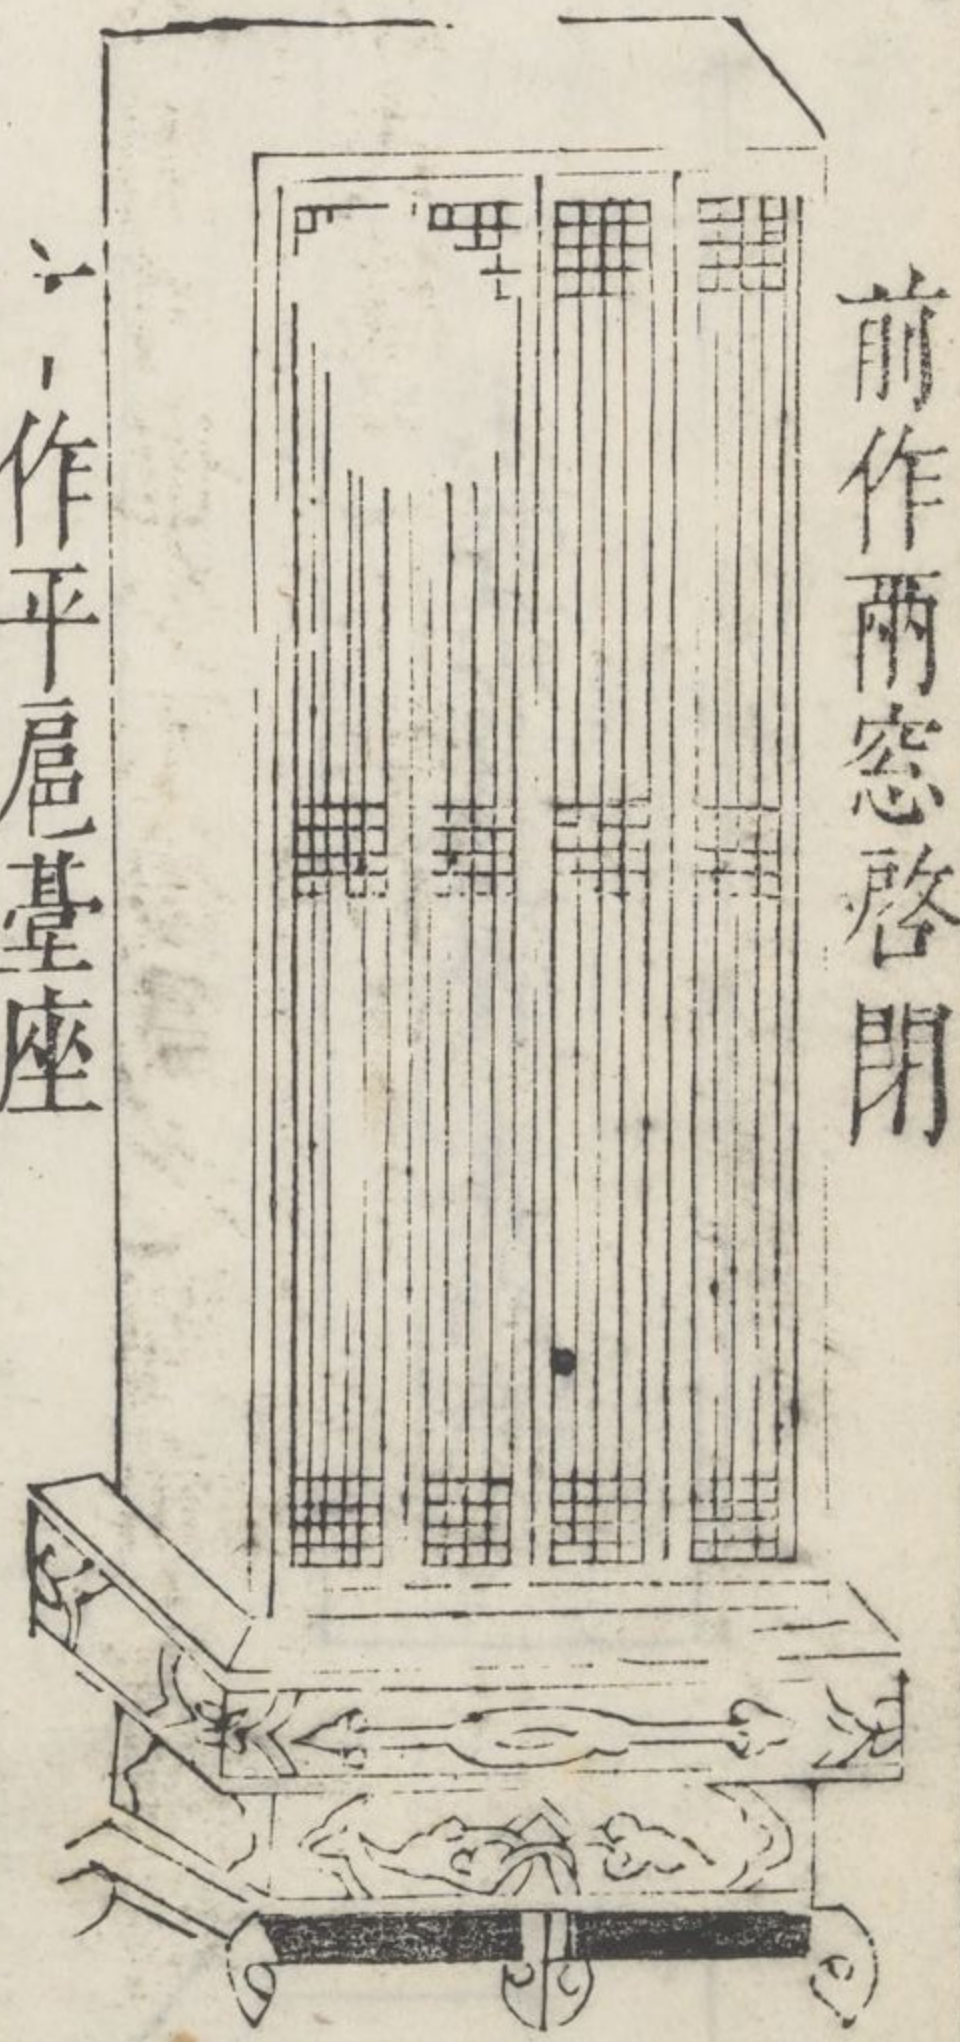 前作兩窓啓閉
作平扈䑓座